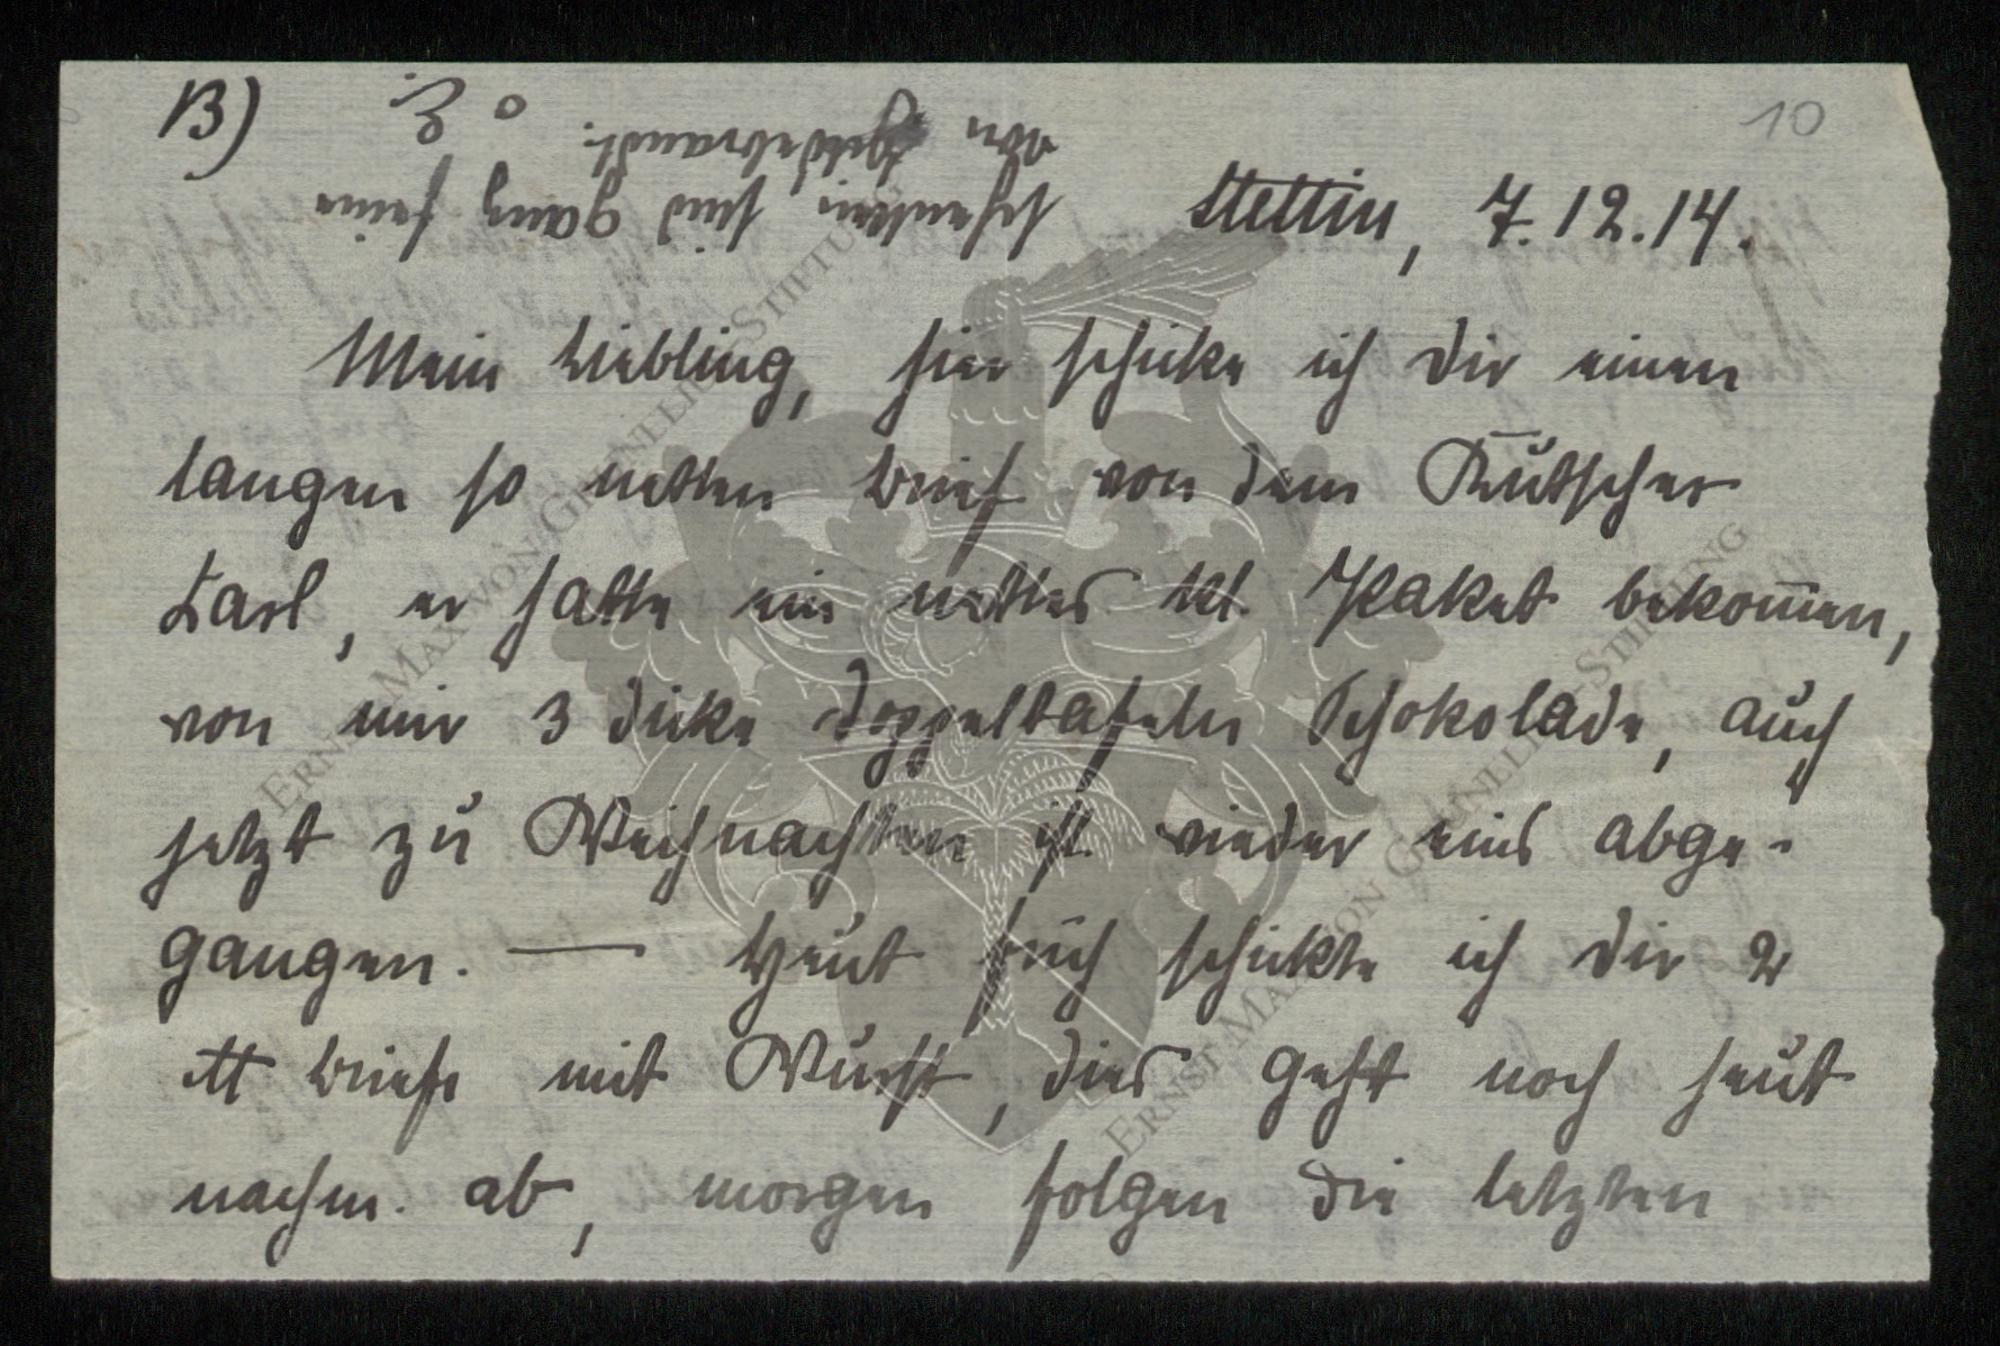 B)
10
Stettin, 7.12.14.
Mein Liebling, hier schicke ich Dir einen
langen so netten Brief von dem Kutscher
Karl, er hatte ein nettes kl. Paket bekom̅en,
von mir 3 dicke Doppeltafeln Schokolade, auch
jetzt zu Weihnachten ist wieder eins abge-
gangen. — Heut früh schickte ich Dir 2
℔ briefe mit Wurst, dies geht noch heut
nachm. ab, morgen folgen die letzten
schenken, sind ganz feine
von Hildebrandt.
ERNST MAX VON GRUNELIUS-STIFTUNG
ERNST MAX VON GRUNELIUS-STIFTUNG